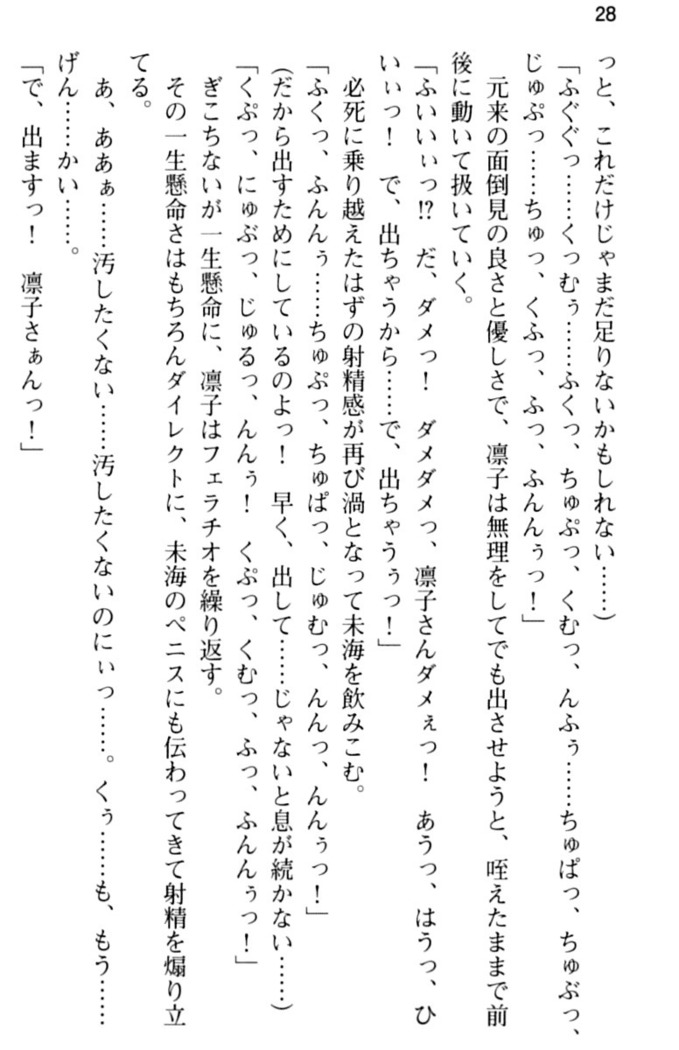 28
っと、これだけじゃまだ足りないかもしれない……)
「ふぐぐっ……くっむぅ……ふくっ、ちゅぷっ、くむっ、んふぅ……ちゅぱっ、ちゅぶっ、
じゅぷっ……ちゅっ、くふっ、ふっ、ふんんぅっ！」
元来の面倒見の良さと優しさで、凛子は無理をしてでも出させようと、咥えたままで前
後に動いて扱いていく。
「ふいいぃっ!?　だ、ダメっ！　ダメダメっ、凛子さんダメぇっ！　あうっ、はうっ、ひ
いぃっ！　で、出ちゃうから……で、出ちゃうぅっ！」
必死に乗り越えたはずの射精感が再び渦となって未海を飲みこむ。
「ふくっ、ふんんぅ……ちゅぷっ、ちゅぱっ、じゅむっ、んんっ、んんぅっ！」
(だから出すためにしているのよっ！　早く、出して……じゃないと息が続かない……)
「くぷっ、にゅぶっ、じゅるっ、んんぅ！　くぷっ、くむっ、ふっ、ふんんぅっ！」
ぎこちないが一生懸命に、凛子はフェラチオを繰り返す。
その一生懸命さはもちろんダイレクトに、未海のペニスにも伝わってきて射精を煽り立
てる。
あ、ああぁ……汚したくない……汚したくないのにぃっ……。くぅ……も、もう……
げん……かい……。
「で、出ますっ！　凛子さぁんっ！」